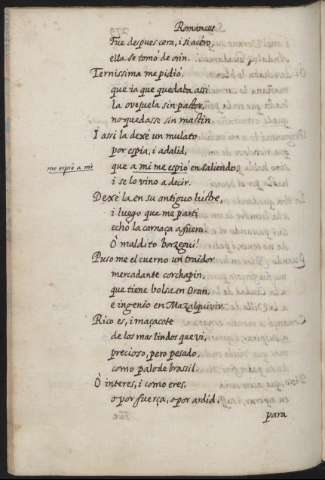 Romances
Fue despues cera, i si azero,
ella se tomó de orin.
Ternissima me pidió,
que ia que quedaba assi
la ovejuela sin pastor,
no quedasse sin mastin.
I assi la dexé un mulato
por espia, i adalid,
me espió a mi
que a mi me espió en saliendo,
i se lo vino a decir.
Dexéla en su antiguo lustre,
i luego que me parti
echó la carnaça afuera
O maldito borzegui!
Puso me el cuerno un traidor
mercadante corchapin,
que tiene bolsa en Oran,
e ingenio en Mazalquivir.
Rico es, i maçacote
de los mas lindos que vi,
precioso, pero pesado,
como palo de brasil.
O interes, i como eres,
o por fuerça, o por ardid,
para